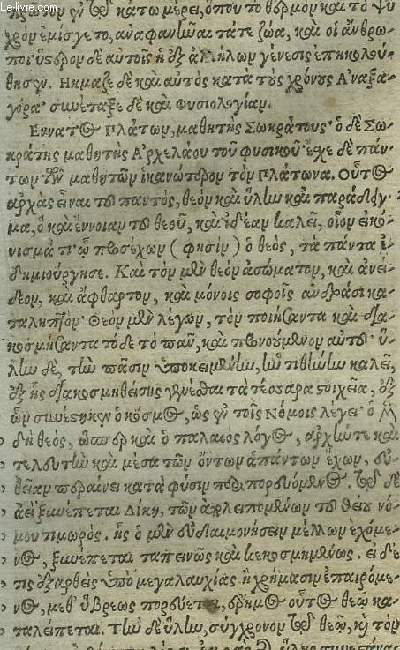 Le-livre.com
μόριον ἐν τῷ κάτω μέρει, ὁπόυ τὸ θερμὸν καὶ τὸ ψυ
χρὸν ἐμίσγετο, ἀναφανῆναι τά τε ζῶα, καὶ οἱ ἄνθρω
ποι· ὕστερον δὲ αὐτοῖς ἡ ἐξ ἀλλήλων γένεσις ἐπηκολού
θησεν. Ηκμαζε δὲ καὶ αὐτὸς κατὰ τοὺς χρόνους Α᾿ναξα
γόρα· συνέταξε δὲ καὶ Φυσιολογίαν.
Εννατος Πλάτων, μαθητὴς Σωκράτους· ὁ δὲ Σω
κράτης μαθητὴς Α᾿ρχελάου τοῦ φυσικοῦ· ἔχε δὲ πάν
των τῶν μαθητῶν ἱκανώτερον τὸν Πλάτωνα. Οὗτος
ἀρχὰς εἶναι τοῦ παντὸς, θεὸν καὶ ὕλην καὶ παράδειγ
μα, ὃ καὶ ἔννοιαν τοῦ θεοῦ, καὶ ἰδέαν καλεῖ, οἷον εἰκό
νισμά τι ᾧ προσέχων (φησὶν) ὁ θεὸς, τὰ πάντα ἐ
δημιούργησε. Καὶ τὸν μὲν θεὸν ἀσώματον, καὶ ἀνεί
δεον, καὶ ἄφθαρτον, καὶ μόνοις σοφοῖς ἀνδράσι κα
ταληπτόν· Θεὸν μὲν λέγων, τὸν ποιήσαντα καὶ δια
κοσμήσαντα τό δε τὸ πᾶν, καὶ προνοούμενον αὐτοῦ· ὕ
λην δὲ, τὴν πᾶσιν ὑποκειμένην, ἣν τιθήνην καλεῖ,
ἐξ ἧς διακοσμηθείσης γενέσθαι τὰ τέσσαρα στοιχεῖα, ἐξ
ὧν συνέστηκεν ὁ κόσμος, ὡς ἐν τοῖς Νόμοις λέγει· ὁ μ̀
δὴ θεὸς, ὥσπερ καὶ ὁ παλαιὸς λόγος, ἀρχήν τε καὶ
τελευτὴν καὶ μέσα τῶν ὄντων ἁπάντων ἔχων, εὐ
θεῖαν περαίνει κατὰ φύσιν περιπορευόμενος. τῷ δὲ
ἀεὶ ξυνέπεται Δίκη, τῶν ἀπλειπομένων τοῦ θείου νό
μου τιμωρός. ἧς ὁ μὲν εὐδαιμονήσειν μέλλων ἐχόμε
νος, ξυνέπεται ταπεινὸς καὶ κεκοσμημένως. εἰ δέ
τις ἐξαρθεὶς ὑπὸ μεγαλαυχίας ἢ χρήμασιν ἐπαιρόμε
νος, μεθ᾿ ὕβρεως πορεύεται, ἔρημος οὗτος θεοῦ κα
ταλείπεται. Τὴν δὲ ὕλην, σύγχρονον τῷ θεῷ, κỳ τὸν